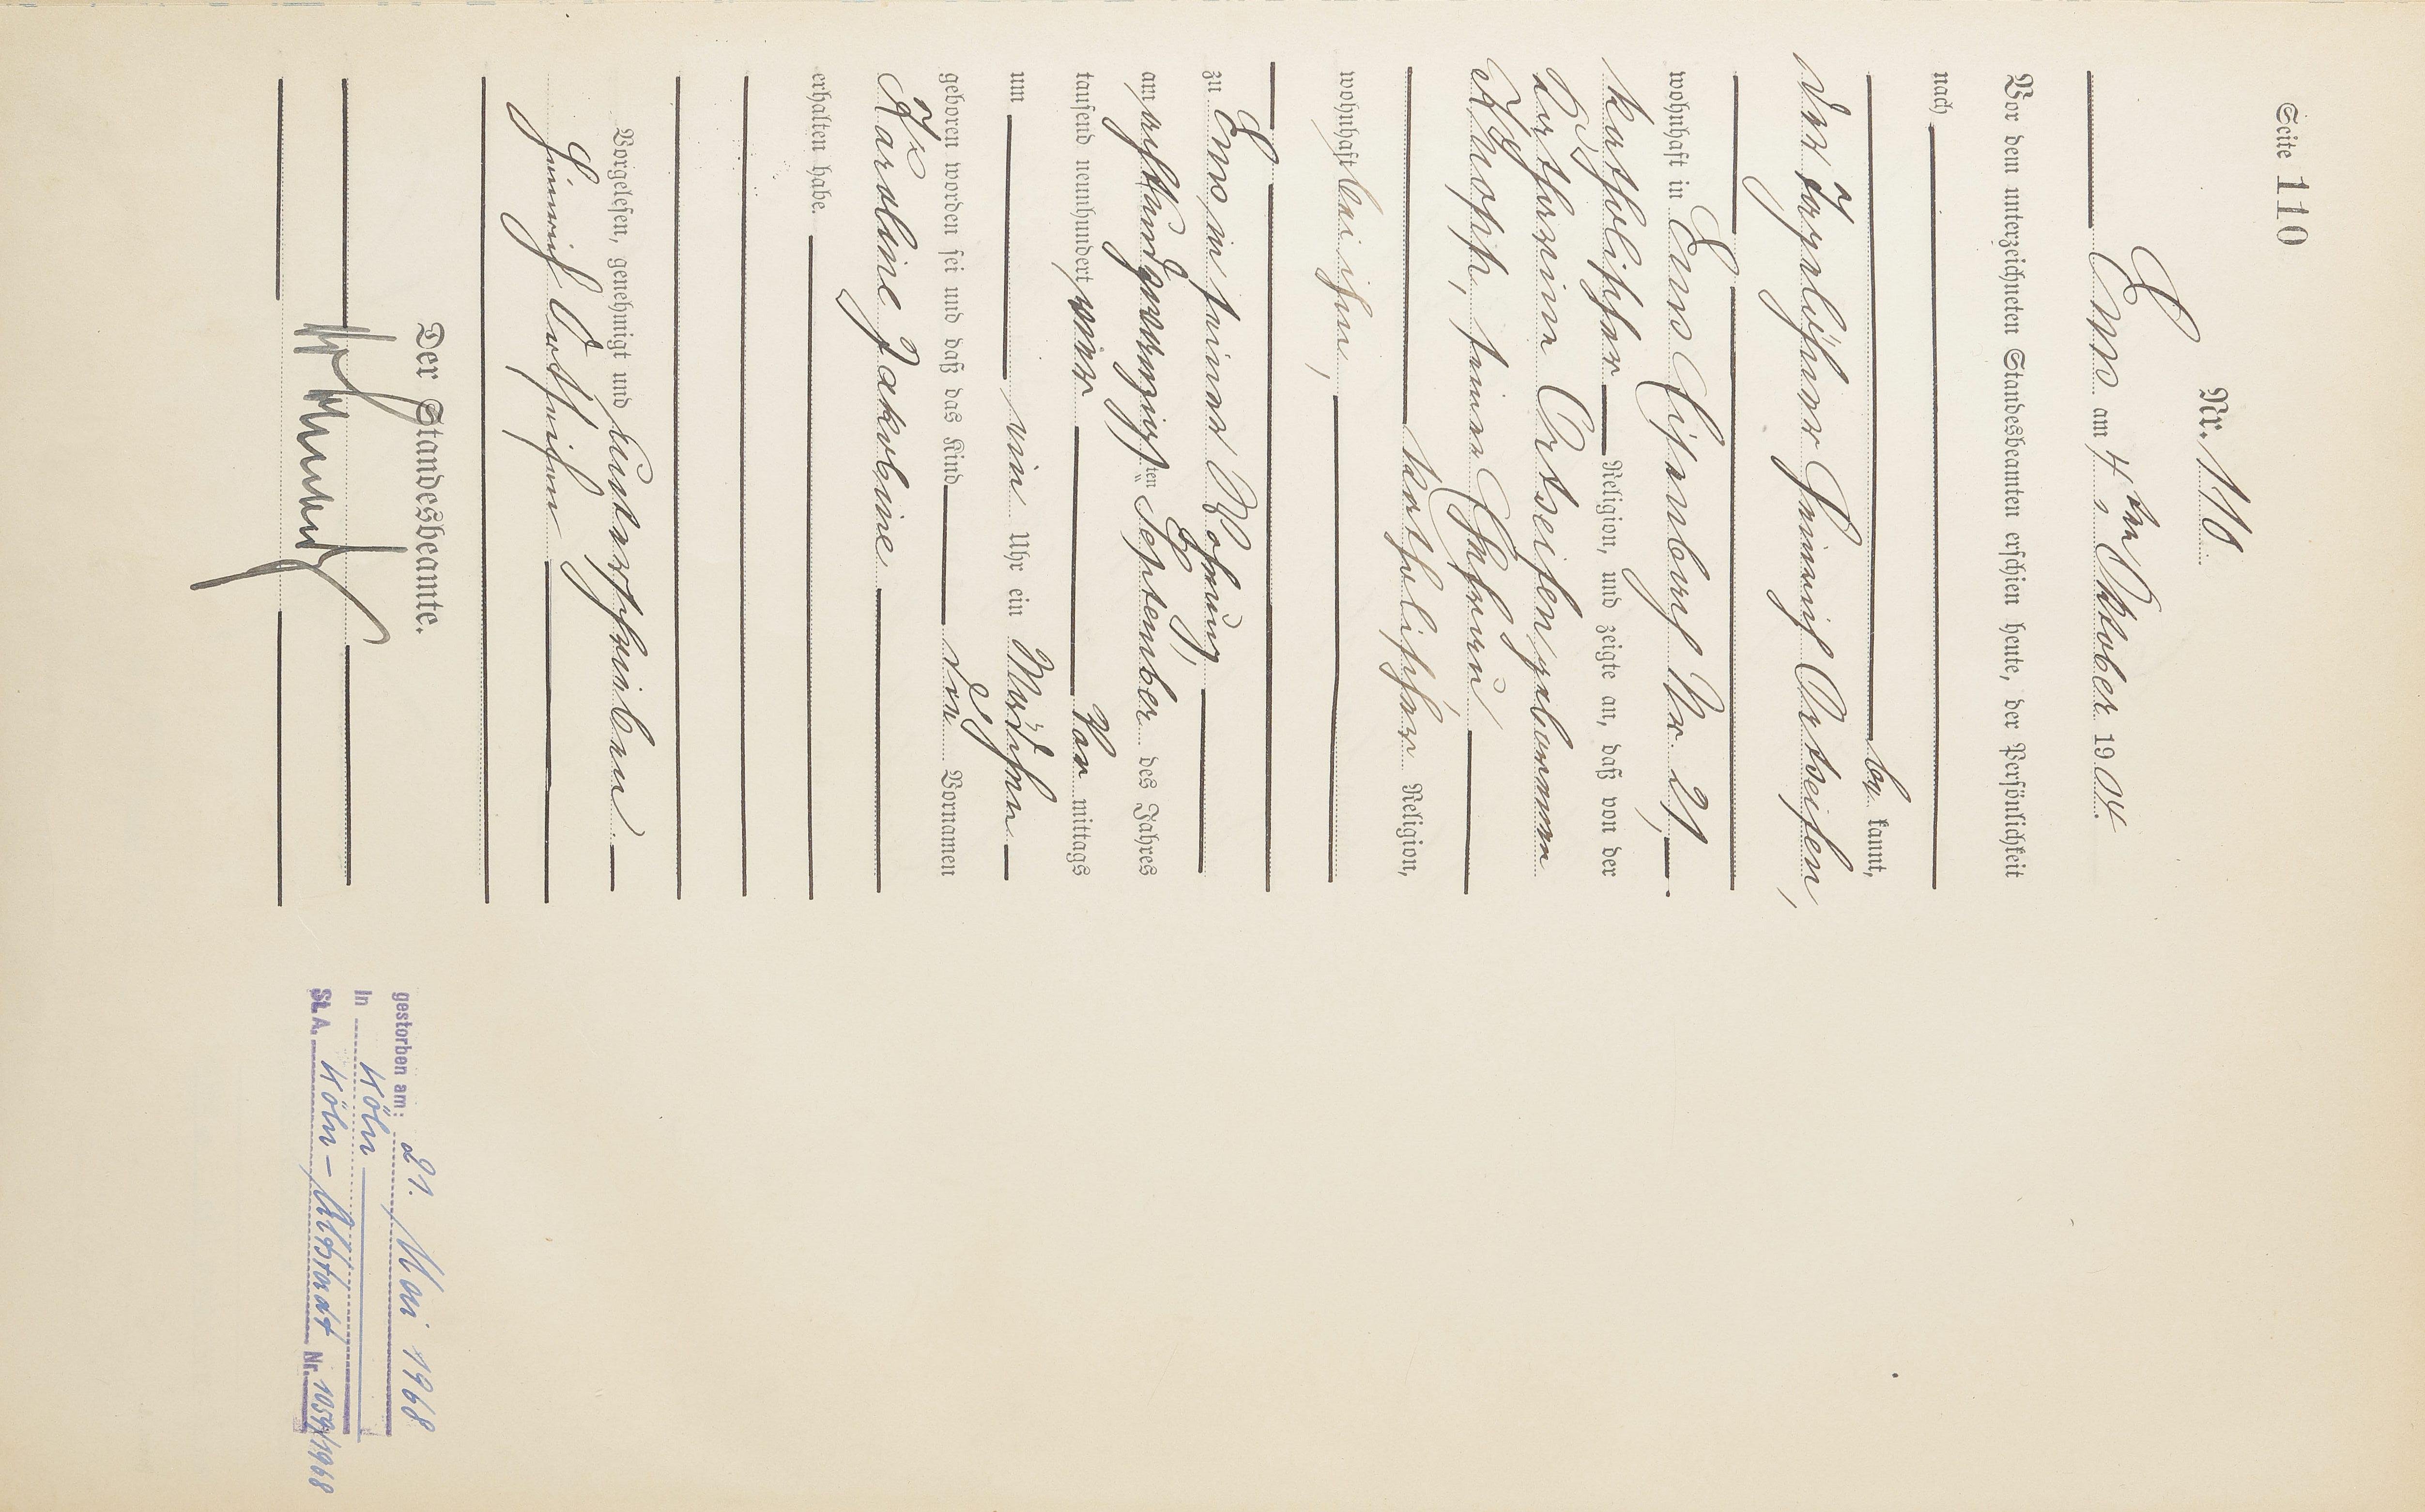 Seite 110
Nr. 110
Ems am 4ten Oktober 1904.
Vor dem unterzeichneten Standesbeamten erschien heute, der Persönlichkeit
nach
be kannt,
der Tagelöhner Heinrich Ortseifen,
wohnhaft in Ems Eisenbach Nr. 21,
katholischer Religion, und zeigte an, daß von der
Katharina Ortseifen geborenen
Knopp, seiner Ehefrau
katholischer Religion,
wohnhaft bei ihm,
zu Ems, in seiner Wohnung,
am achtundzwanzigsten September des Jahres
tausend neunhundert vier Vor mittags
um ein Uhr ein Mädchen
geboren worden sei und daß das Kind den Vornamen
Karoline Jakobine
erhalten habe.
Vorgelesen, genehmigt und unterschrieben
Heinrich Ortseifen
Der Standesbeamte.
gestorben am: 21. Mai 1968
in Köln
St.A. Köln-Altstadt Nr. 1059/1968